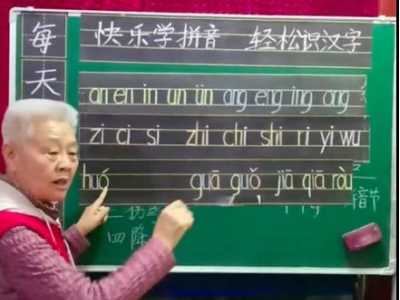 每天
快乐学拼音 轻松识汉字
an en in un ün ang eng ing ong
zi ci si zhi chi shi ri yi wu
huó guā guǒ jiā qiā
四
音节